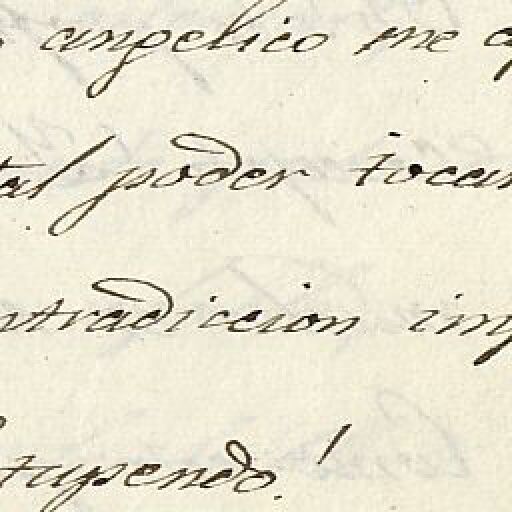 angelico me
tal poder tocar
ntradiccion imp
tupendo!